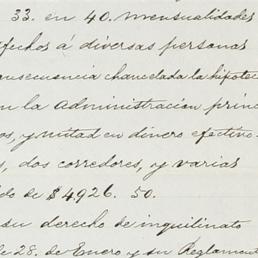 33. en 40. mensualidades
fechos á diversas personas
nsecuencia chancelada la hipotec
n la Administracion princ
os, y mitad en dinero efectivo.
s, dos corredores, y varias
do de $4,926. 50.
su derecho de inquilinato
le 28. de Enero y su Reglament